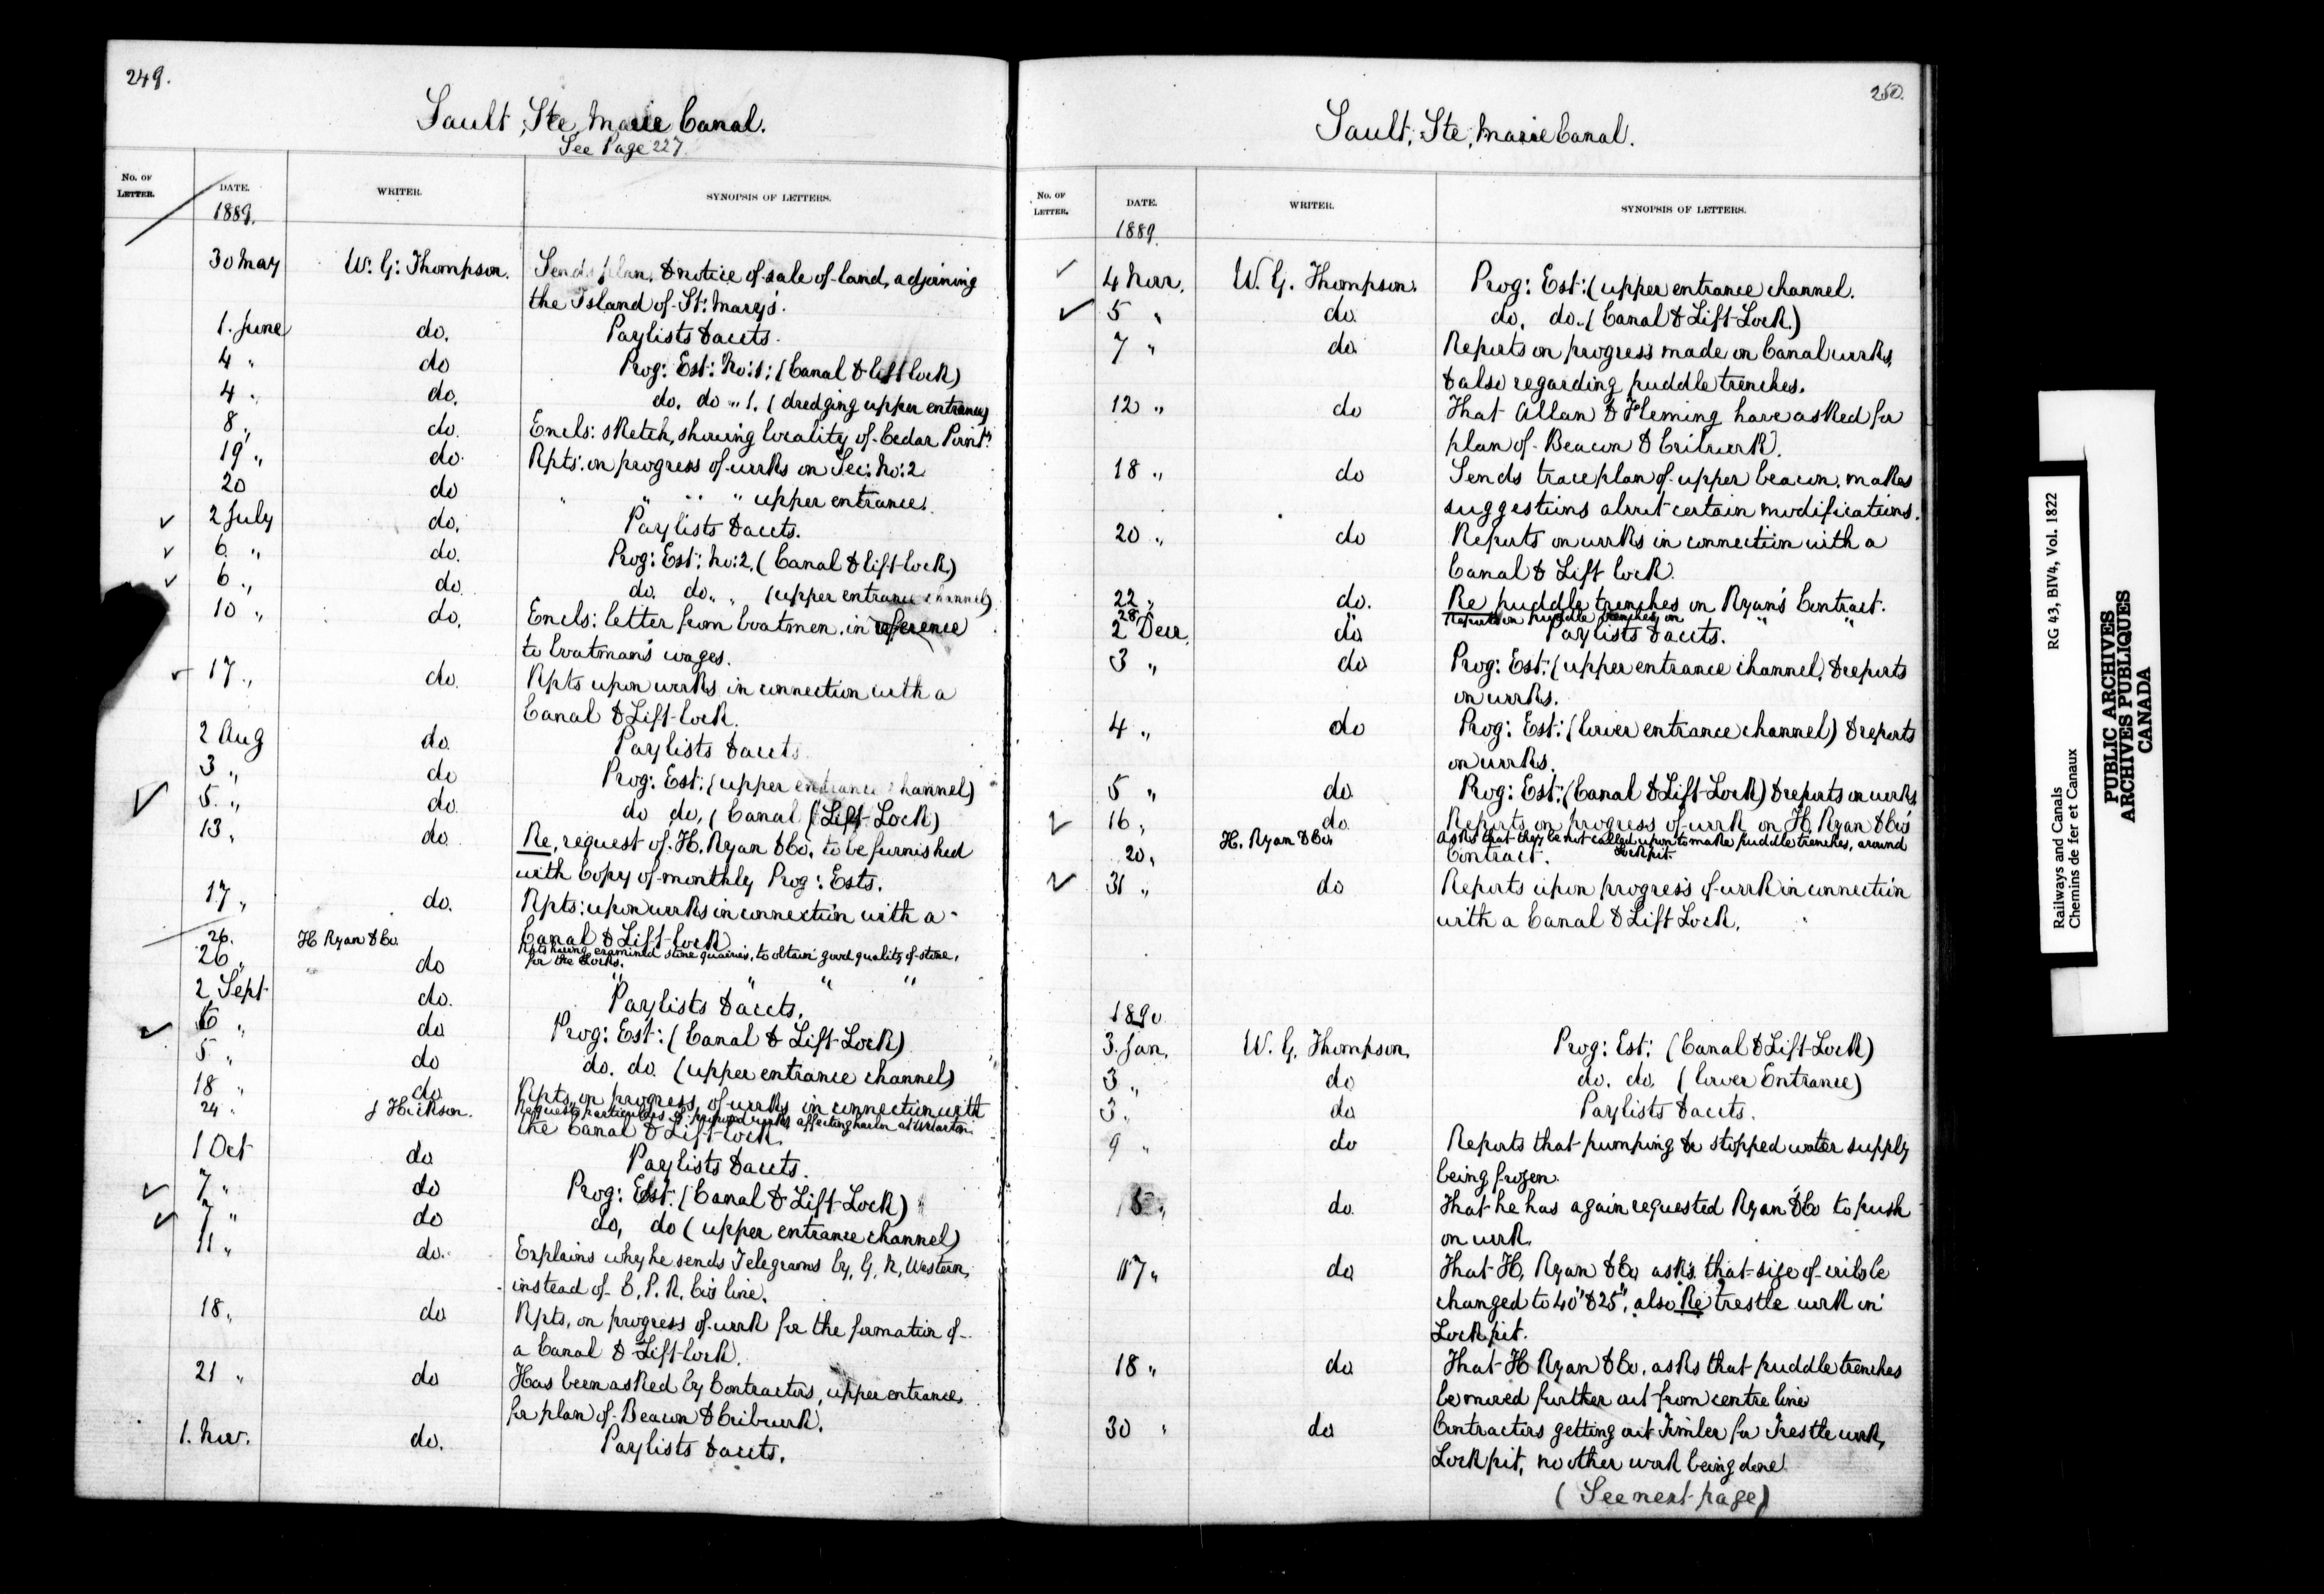 249.
Sault, Ste, Marie Canal.
See Page 227
No. of Letter. DATE. WRITER. SYNOPSIS OF LETTERS.
1889.
30 May W. G. Thompson. Sends plan, & notice of sale of land, adjoining
the Island of St: Mary's.
1. June do. Paylists & accts.
4 " do Prog: Est: No: 1: (Canal & lift lock)
4 " do. do. do " 1. (dredging upper entrance)
8 " do. Encls: sketch, showing locality of Cedar Point.
19 " do. Rpts: on progress of works on Sec: No: 2
20 do " " " " upper entrance.
2 July do. Paylists & accts.
6 " do. Prog: Est: No: 2. (Canal & lift lock)
6 " do. do. do. " " (upper entrance channel)
10 " do. Encls: letter from boatmen, in reference
to boatman's wages.
17 " do. Rpts upon works in connection with a
Canal & Lift-lock.
2 Aug do. Paylists & accts
3 " do Prog: Est: (upper entrance channel)
5 " do. do do, (Canal & Lift-Lock)
13 " do. Re, request of H. Ryan & Co. to be furnished
with Copy of monthly Prog: Ests.
17 " do. Rpts: upon works in connection with a
Canal & Lift-lock
26. H Ryan & Co. Rpts having examined stone quarries, to obtain good quality of stone,
for the Locks.
26 " do " " " "
2 Sept do. Paylists & accts.
6 " do Prog: Est: (Canal & Lift-Lock)
5 " do do. do. (upper entrance channel)
18 " do Rpts, on progress of works in connection with
24 " J Hickson. Requests particulars of proposed works affecting harbor at Wiarton.
the Canal & Lift-lock.
1 Oct do Paylists & accts.
7 " do Prog: Est: (Canal & Lift-Lock)
7 " do do, do (upper entrance channel)
11 " do. Explains why he sends Telegrams by, G. N. Western,
instead of C. P. R. Co's line.
18 " do Rpts, on progress of work for the formation of
a Canal & Lift-lock.
21 " do Has been asked by Contractors, upper entrance,
for plan of Beacon & Cribwork.
1. Nov. do. Paylists & accts.
250.
Sault, Ste, Marie Canal.
No. of Letter. DATE. WRITER. SYNOPSIS OF LETTERS.
1889.
4 Novr. W. G. Thompson. Prog: Est: (upper entrance channel.
5 " do. do. do. (Canal & Lift-Lock.)
7 " do. Reports on progress made on Canal works,
& also regarding puddle trenches.
12 " do That Allan & Fleming have asked for
plan of Beacon & Cribwork.
18 " do Sends trace plan of upper beacon, makes
suggestions about certain modifications.
20 " do Reports on works in connection with a
Canal & Lift lock.
22 " do. Re puddle trenches on Ryan's Contract.
28 " " Reports on puddle trenches on " "
2 Decr do Paylists & accts.
3 " do Prog: Est: (upper entrance channel, & reports
on works.
4 " do Prog: Est: (lower entrance channel) & reports
on works.
5 " do. Prog: Est: (Canal & Lift-Lock) & reports on works
16 " do. Reports on progress of work on H. Ryan & Co's
20 " H. Ryan & Co. Asks that they be not called upon to make puddle trenches, around
Contract. Lockpit.
31 " do Reports upon progress of work in connection
with a Canal & Lift Lock.
1890
3. Jan, W. G. Thompson, Prog: Est: (Canal & Lift-Lock)
3 " do do. do. (lower Entrance)
3 " do Paylists & accts.
9 " do Reports that pumping is stopped water supply
being frozen.
15 " do. That he has again requested Ryan & Co to push
on work.
17 " do That H. Ryan & Co, asks that size of cribs be
changed to 40" & 25", also Re trestle work in
Lockpit.
18 " do. That H. Ryan & Co, asks that puddle trenches
be moved further out from centre line
30 " do Contractors getting out Timber for Trestle work,
Lockpit, no other work being done.
(See next page)
Railways and Canals RG 43, BIV4, Vol. 1822
Chemins de fer et Canaux
PUBLIC ARCHIVES
ARCHIVES PUBLIQUES
CANADA